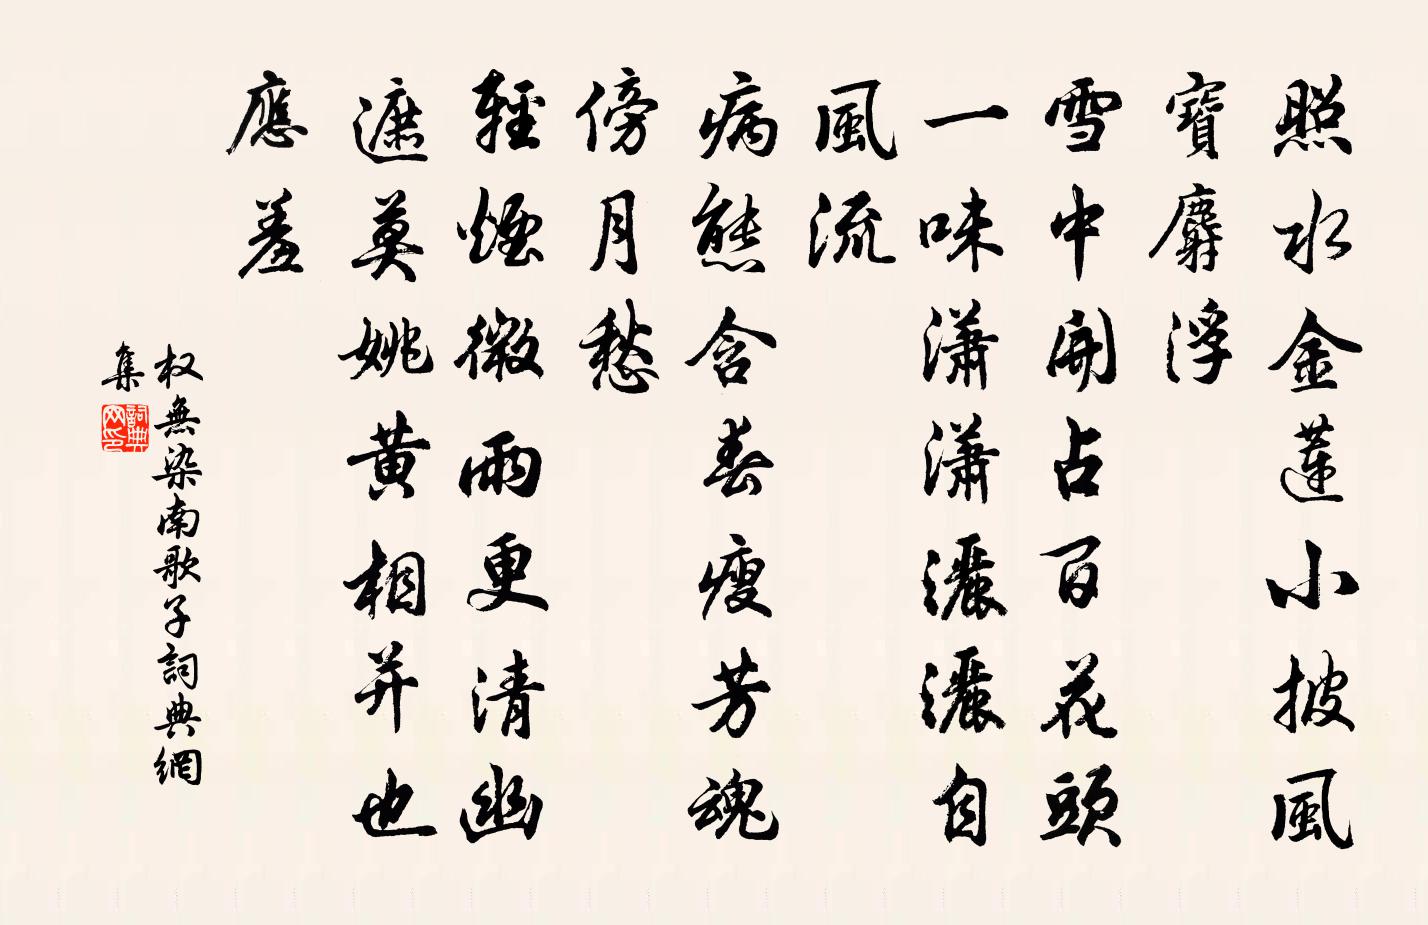 照水金蓮小披風
寶麝浮
雪中開占百花頭
一味瀟瀟灑灑自
風流
病態含春瘦芳魂
傍月愁
輕煙微雨更清幽
遮莫姚黃相并也
應羞
权無染南歌子詞典網
集
詞典
网印